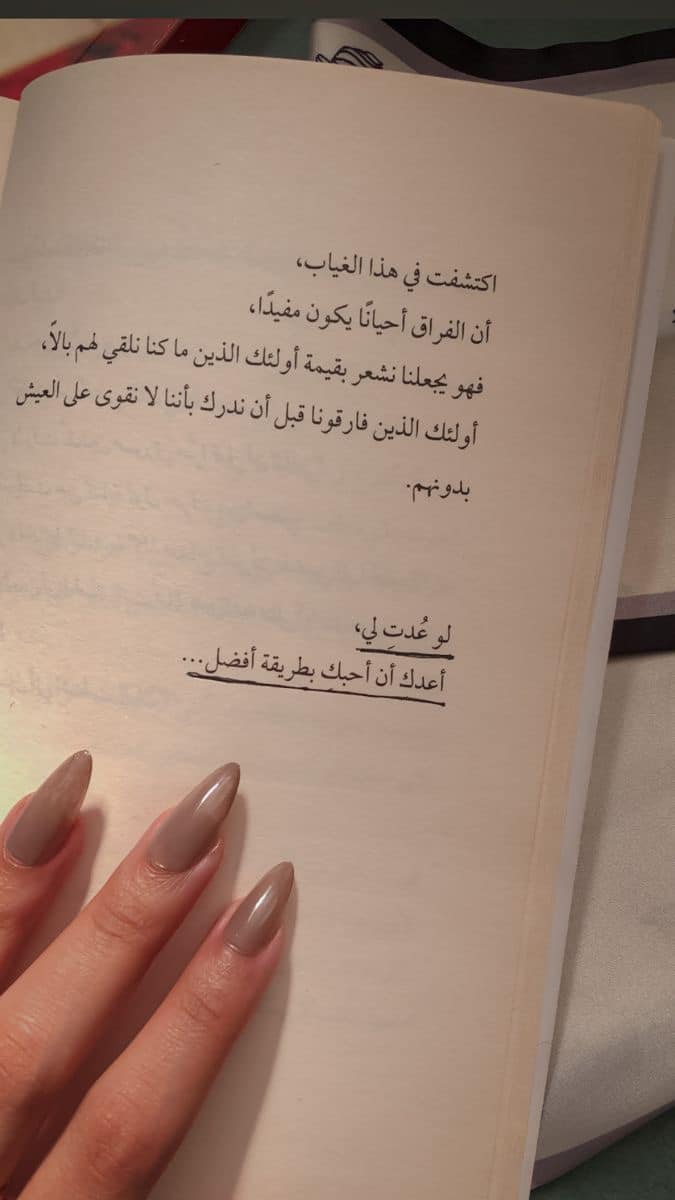 اكتشفت في هذا الغياب،
أن الفراق أحيانًا يكون مفيدًا،
فهو يجعلنا نشعر بقيمة أولئك الذين ما كنا نلقي لهم بالاً،
أولئك الذين فارقونا قبل أن ندرك بأننا لا نقوى على العيش
بدونهم.
لو عُدتِ لي،
أعدك أن أحبكِ بطريقة أفضل...